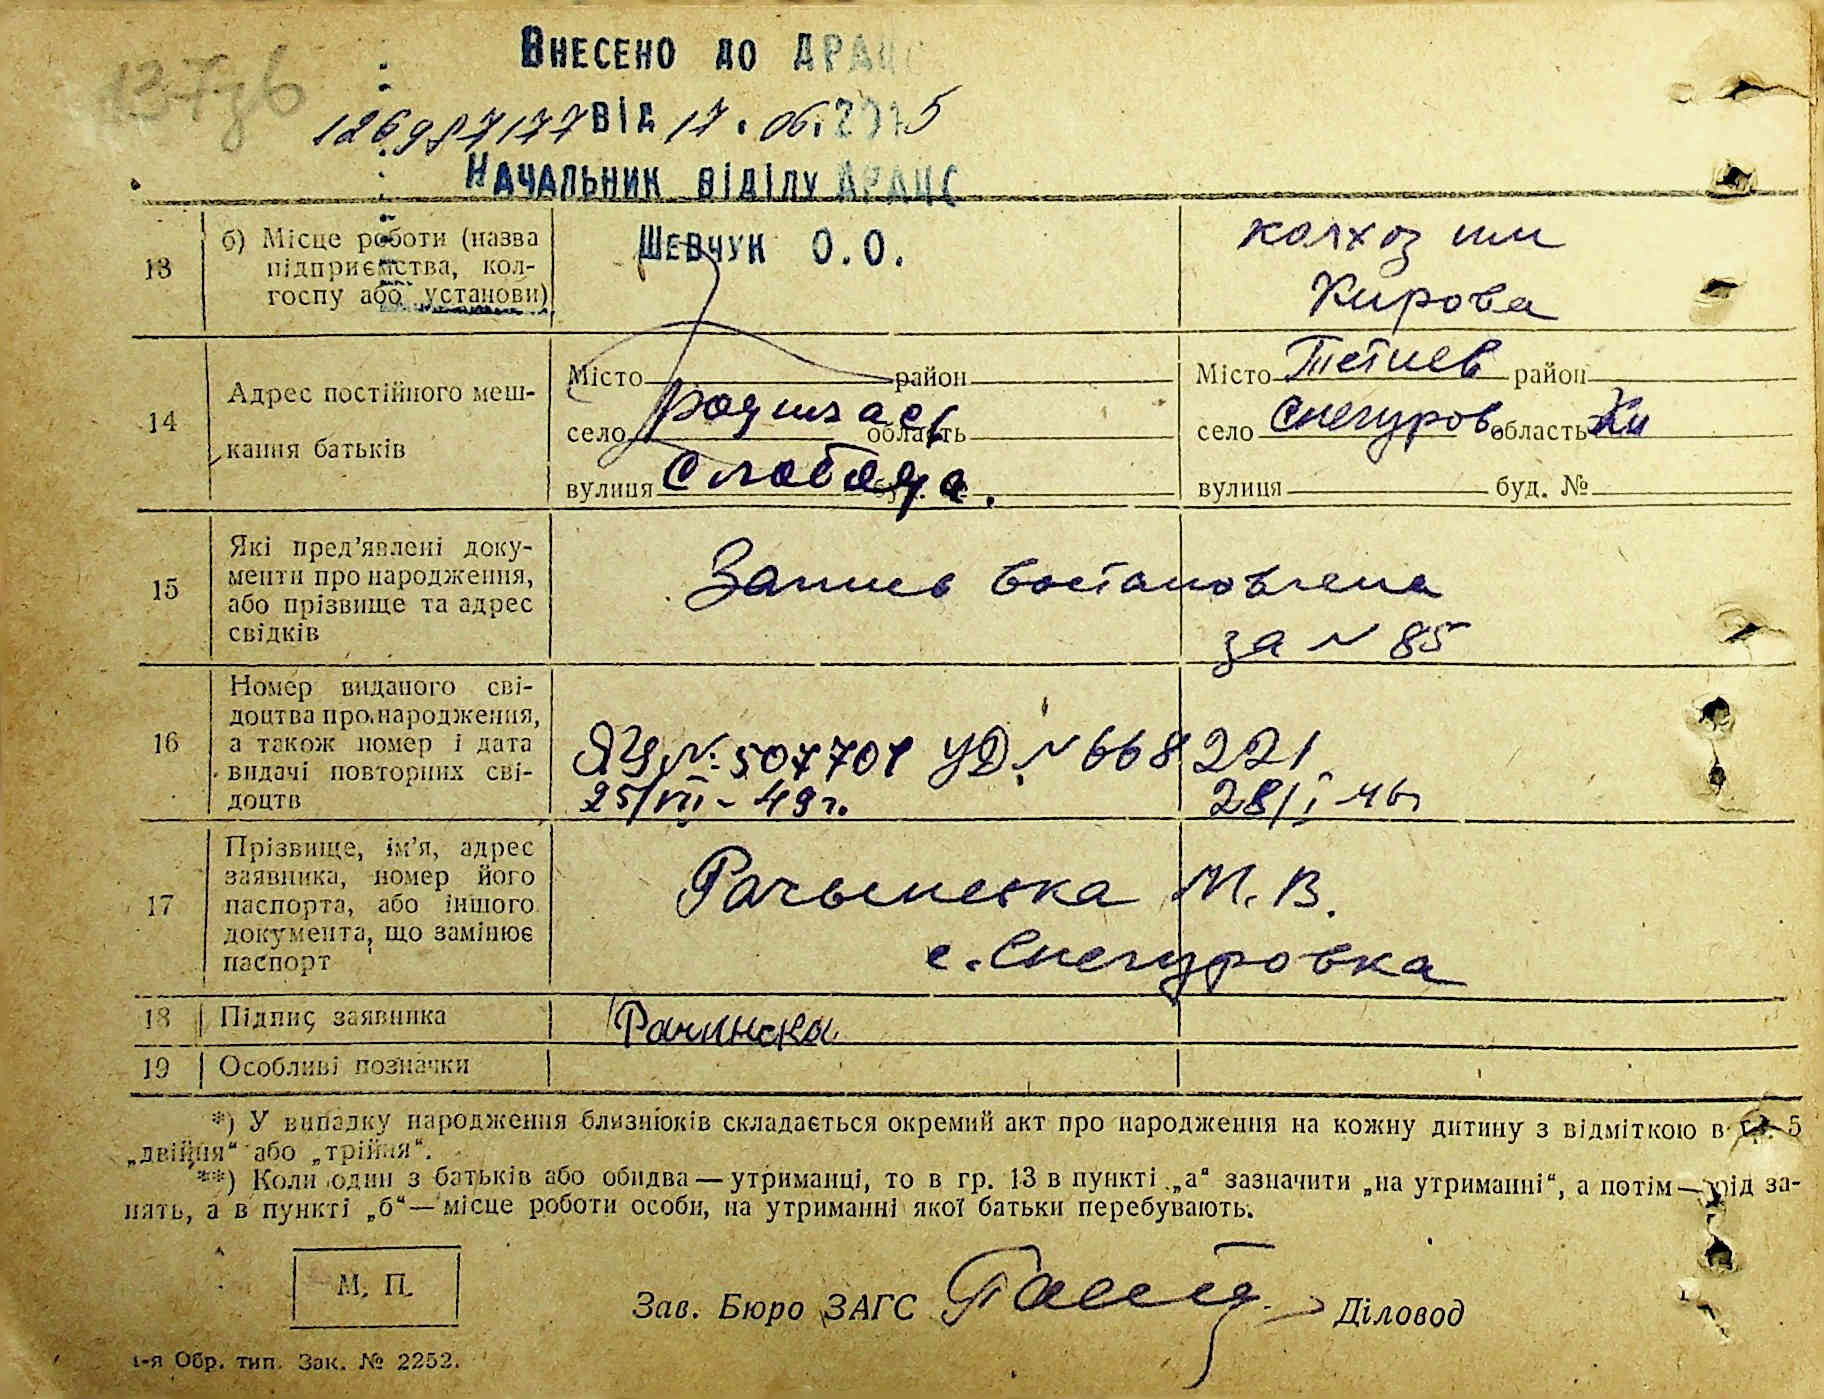 137зв
Внесено до ДРАЦС
126987177 від 17.06.2015
Начальник відділу ДРАЦС
Шевчук О.О.
13 б) Місце роботи (назва підприємства, колгоспу або установи)
колхоз им
Кирова
14 Адрес постійного мешкання батьків
Місто район
село область
вулиця
Слобода.
Місто Тетиев район
село Снегуров. область Ки
вулиця буд. №
15 Які пред'явлені документи про народження, або прізвище та адрес свідків
Запись востановлена
за N 85
16 Номер виданого свідоцтва про народження, а також номер і дата видачі повторних свідоцтв
ЯЦ № 507701 УД N 668221
25/VII - 49 г. 28/I 46г
17 Прізвище, ім'я, адрес заявника, номер його паспорта, або іншого документа, що замінює паспорт
Рачынска М. В.
с. Снегуровка
18 Підпис заявника
Рачинска
19 Особливі позначки
*) У випадку народження близнюків складається окремий акт про народження на кожну дитину з відміткою в гр. 5
„двійня“ або „трійня“.
**) Коли один з батьків або обидва — утриманці, то в гр. 13 в пункті „а“ зазначити „на утриманні“, а потім — рід за-
нять, а в пункті „б“ — місце роботи особи, на утриманні якої батьки перебувають.
М. П.
Зав. Бюро ЗАГС Діловод
1-я Обр. тип. Зак. № 2252.